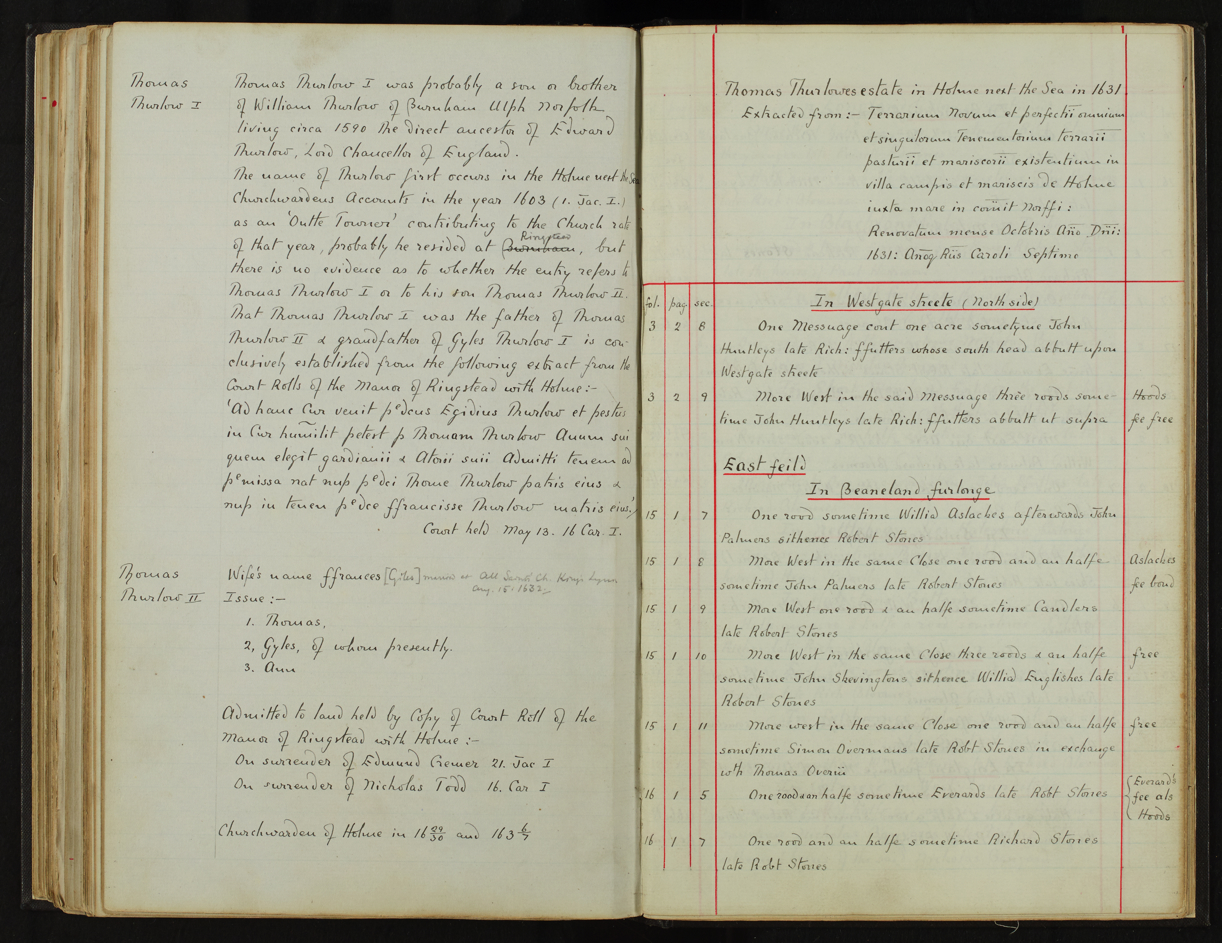 Thomas
Thurlow I
Thomas Thurlow I was probably a son or brother
of William Thurlow of Burnham Ulph Norfolk
living circa 1590 the direct ancestor of Edward
Thurlow, Lord Chancellor of England.
The name of Thurlow first occurs in the Holme next the Sea
Churchwardens Accounts in the year 1603 (1. Jac. I.)
as an 'Outte Towner' contributing to the Church rate
of that year, probably he resided at Burnham Ringstead, but
there is no evidence as to whether the entry refers to
Thomas Thurlow I or to his son Thomas Thurlow II.
That Thomas Thurlow I was the father of Thomas
Thurlow II & grandfather of Gyles Thurlow I is con-
clusively established from the following extract from the
Court Rolls of the Manor of Ringstead with Holme:-
'Ad hanc Cur venit pedcus Egidius Thurlow et pestus
in Cur humilit petert p Thomam Thurlow Auum sui
quem elegit gardianii & Atorii suii Admitti tenem ad
pemissa nat nup pedci Thome Thurlow patris eius &
nup in tenen pedce ffrancisse Thurlow matris eius.'
Court held May 13. 16 Car. I.
Thomas
Thurlow II
Wife's name ffrances [Giles] married at All Saints Ch. Kings Lynn
Aug. 15. 1632
Issue:-
1. Thomas,
2, Gyles, of whom presently.
3. Ann
Admitted to land held by Copy of Court Roll of the
Manor of Ringstead with Holme:-
On surrender of Edmund Cremer 21. Jac I
On surrender of Nicholas Todd 16. Car I
Churchwarden of Holme in 16 29/30 and 163 6/7
Thomas Thurlowes estate in Holme next the Sea in 1631
Extracted from:- Terrarium Novum et perfectii omnium
et singulorum Tenementorium terrarii
pasturii et mariscorii existentium in
villa campis et mariscis de Holme
iuxta mare in comit Norffi:
Renovatum mense Octobris Ano Dni:
1631: Anoq Riis Caroli Septimo
fol. pag sec. In Westgate streete (North side)
3 2 8 One Messuage cont one acre sometyme John
Huntleys late Rich: ffutters whose south head abbutt upon
Westgate streete
3 2 9 More West in the said Messuage three roods some- Hoods
time John Huntleys late Rich: ffutters abbutt ut supra fee free
East feild
In Beaneland furlonge
15 1 7 One rood sometime Willia Aslaches afterwards John
Palmers sithence Robert Stones
15 1 8 More West in the same Close one rood and an halfe Aslaches
sometime John Palmers late Robert Stones fee bond
15 1 9 More West one rood & an halfe sometime Candlers
late Robert Stones
15 1 10 More West in the same Close three roods & an halfe free
sometime John Skevingtons sithence Willia Englishes late
Robert Stones
15 1 11 More west in the same Close one rood and an halfe free
sometime Simon Overmans late Robt Stones in exchange
wth Thomas Overiii
16 1 5 One rood & an halfe sometime Everards late Robt Stones Everard's
fee als
Hoods
16 1 7 One rood and an halfe sometime Richard Stones
late Robt Stones